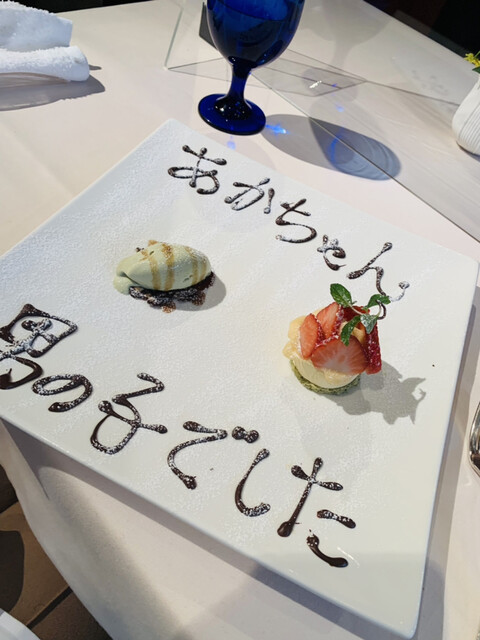 あかちゃん
男の子でした